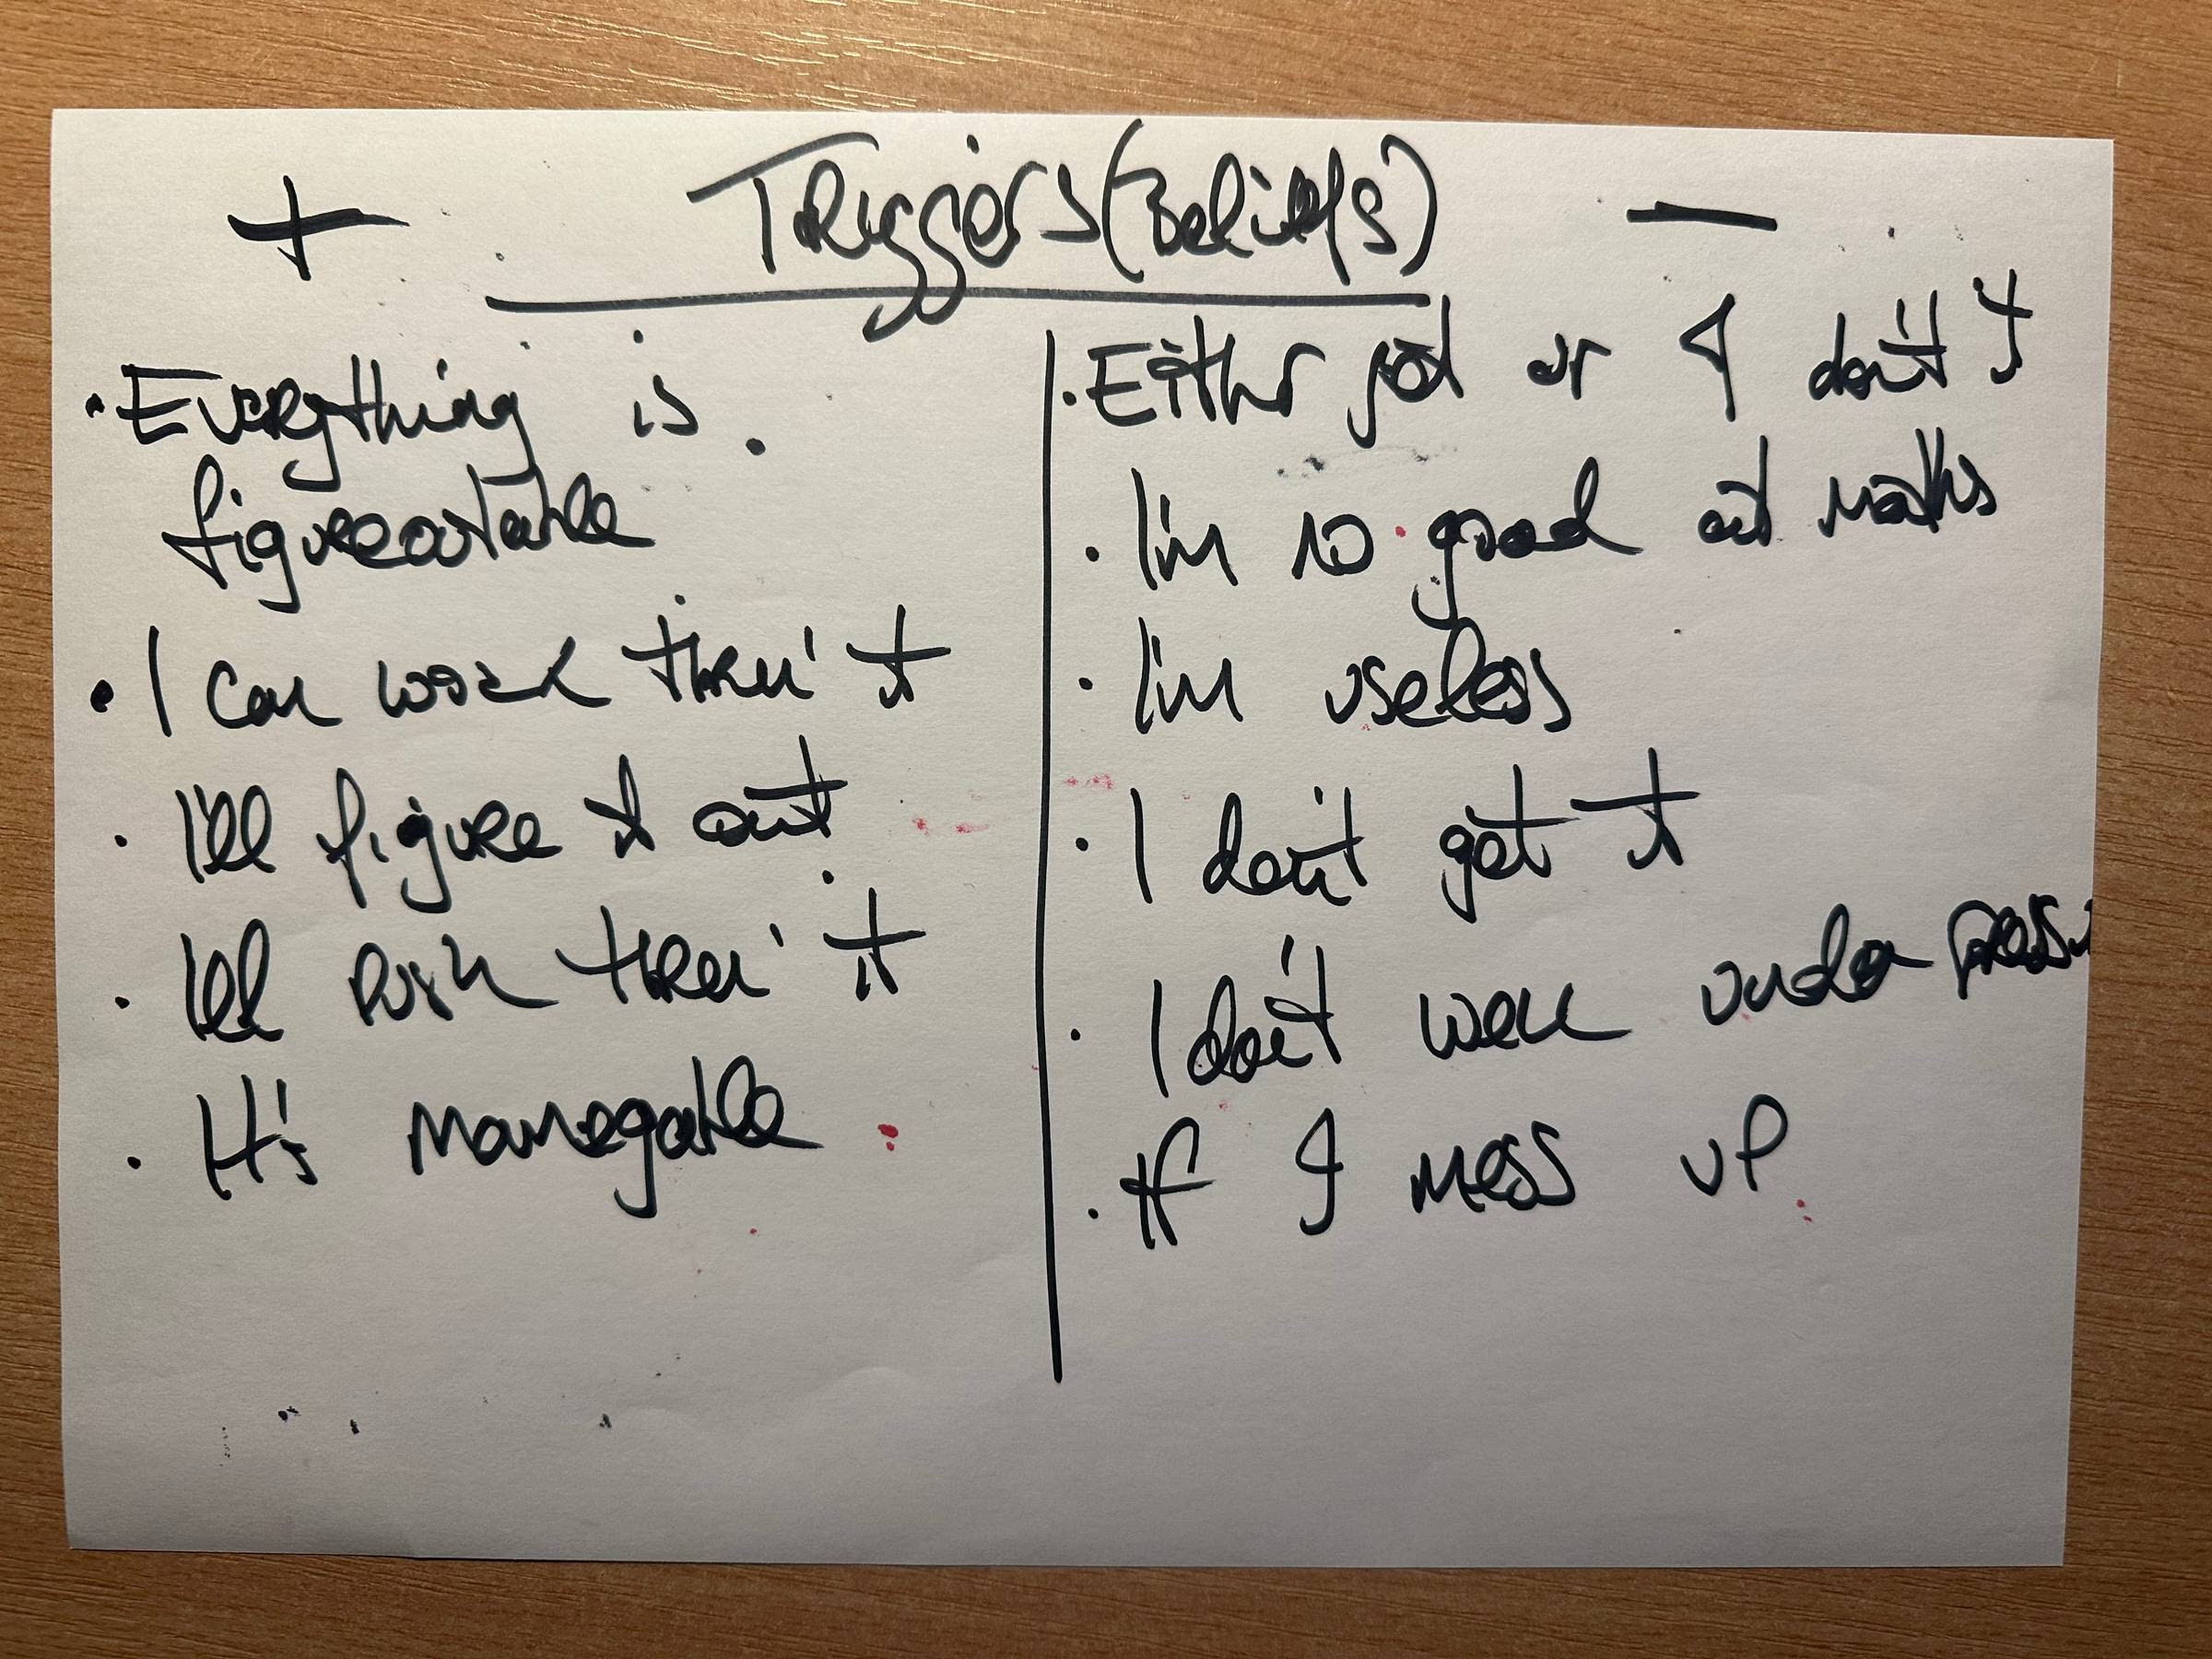 + Triggers (Beliefs) -
• Everything is
figureoutable
• I can work thru' it
• I'll figure it out
• I'll push thru' it
• It's manegable
• Either got or I don't
• I'm no good at maths
• I'm useless
• I don't get it
• I don't work under pressu
• If I mess up